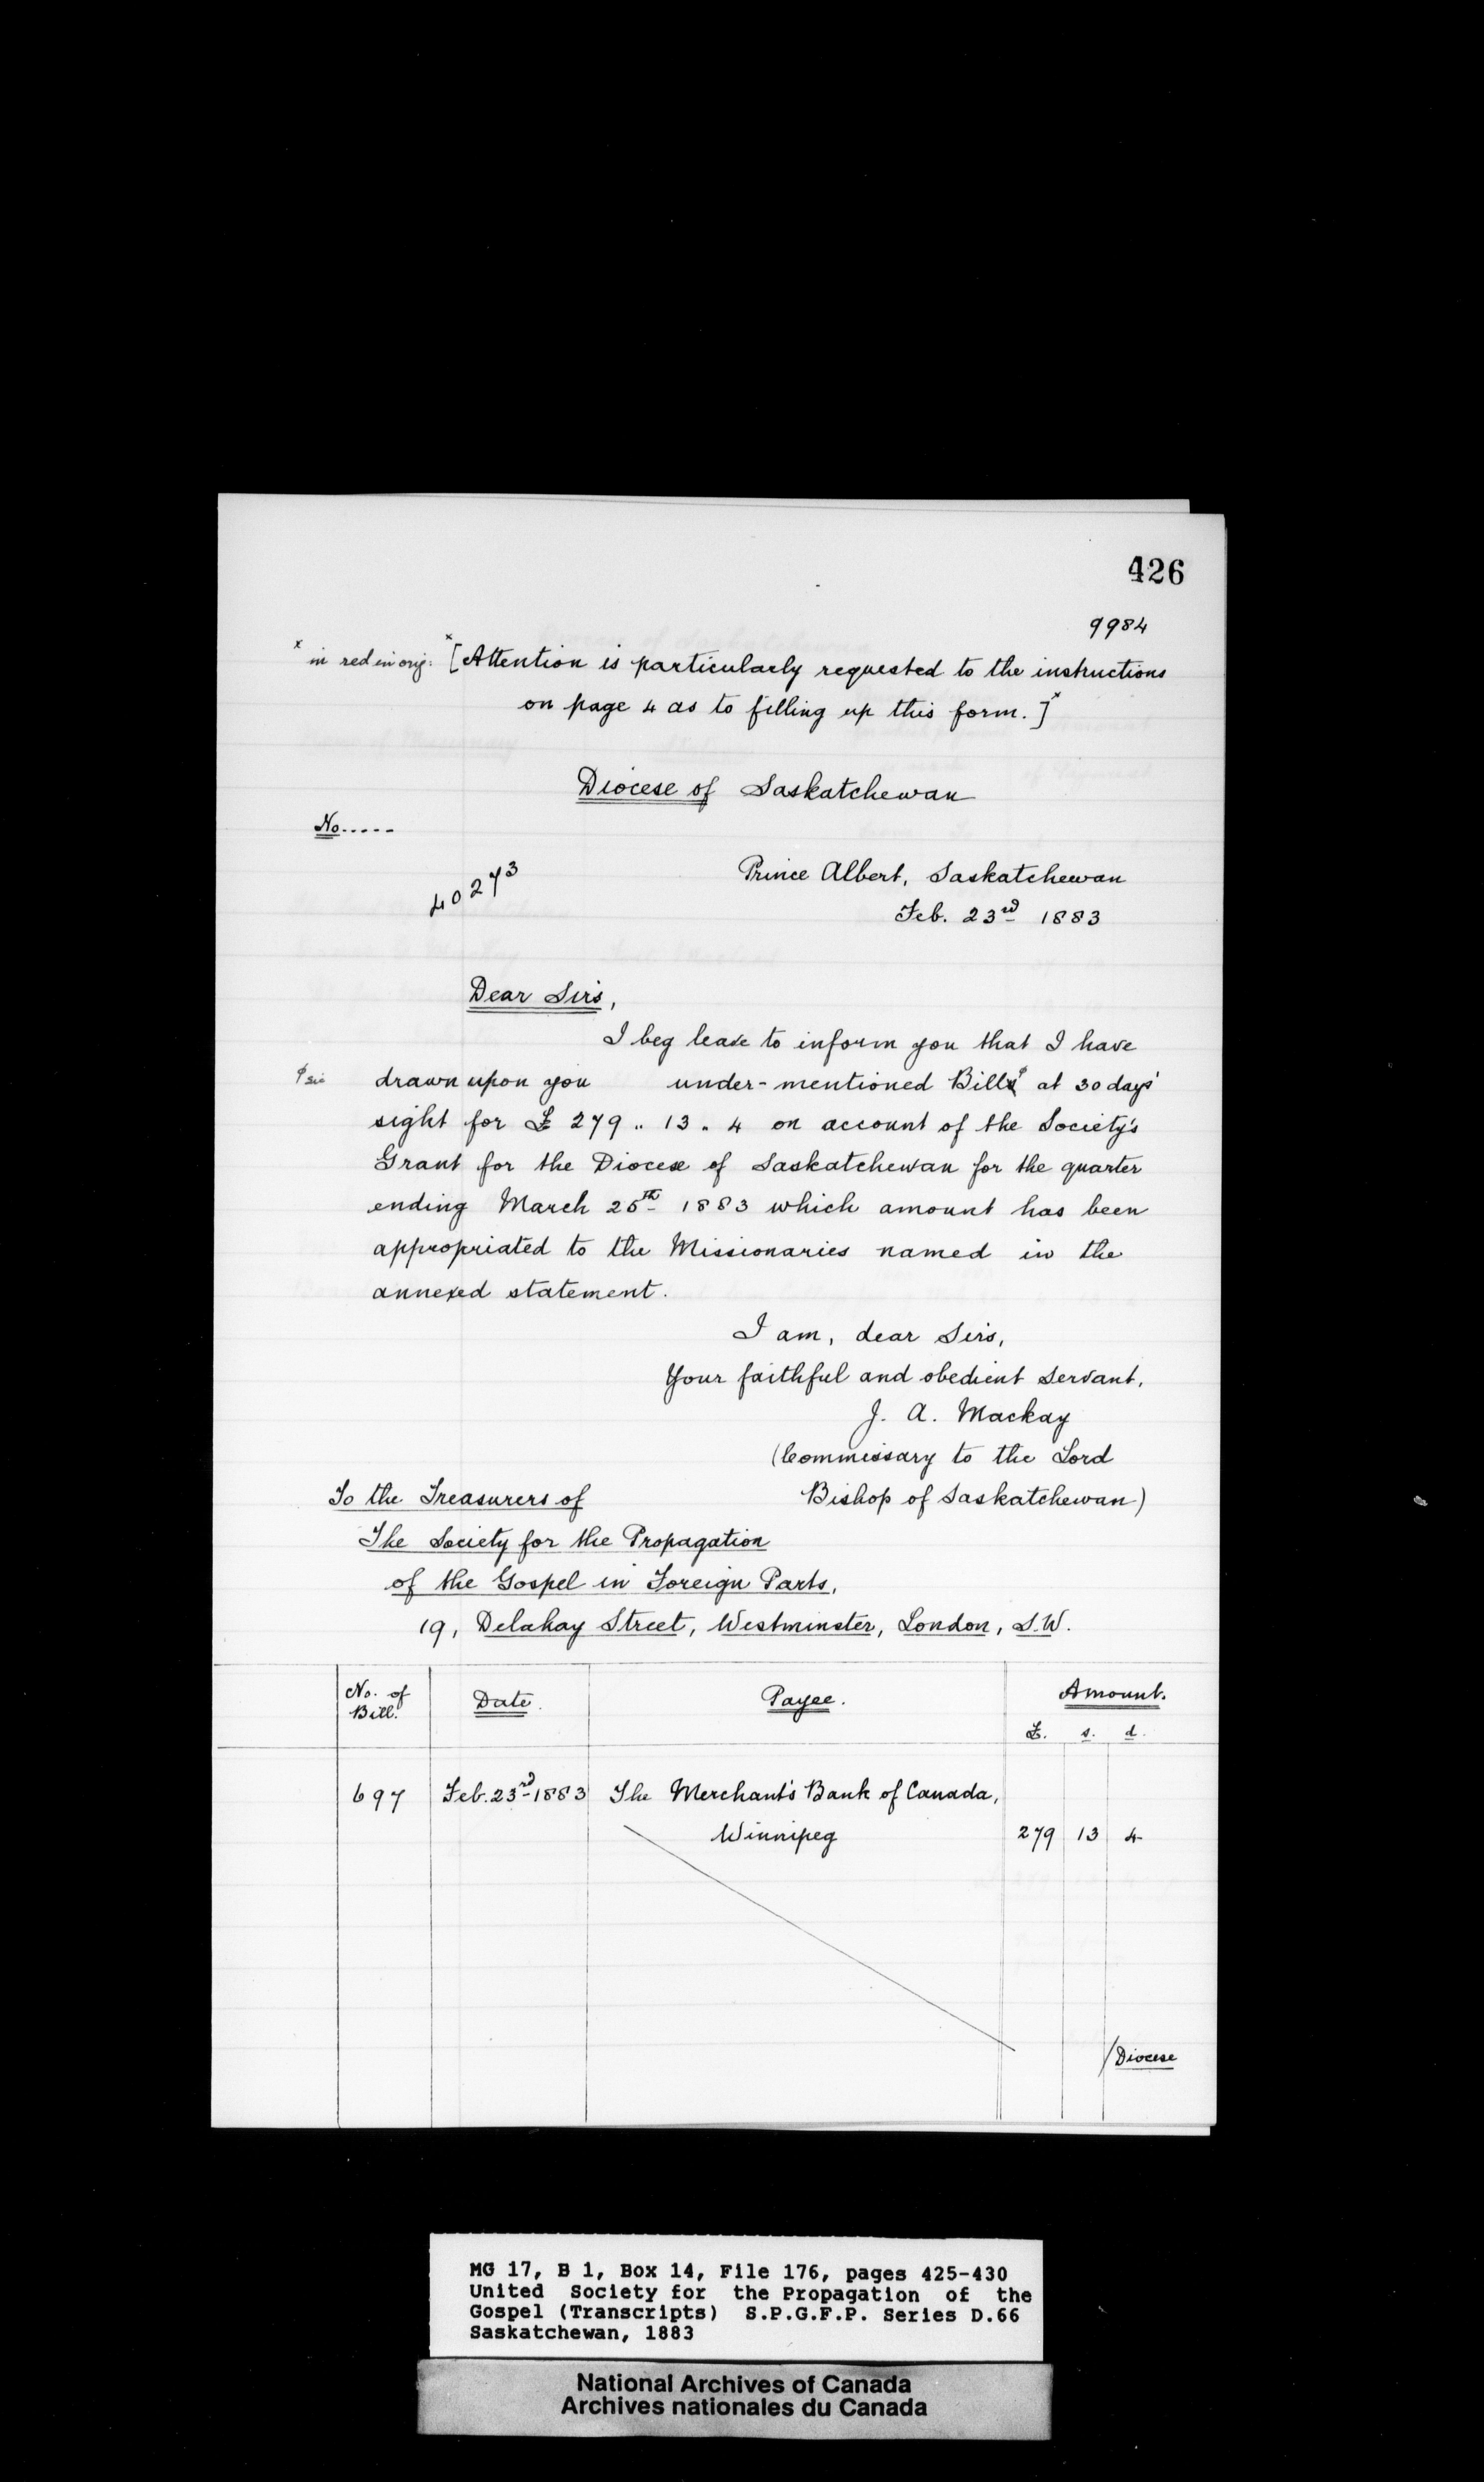 426
9984
x in red in orig: x[Attention is particularly requested to the instructions
on page 4 as to filling up this form.]x
Diocese of Saskatchewan
No.....
40273
Prince Albert, Saskatchewan
Feb. 23rd 1883
Dear Sirs,
I beg leave to inform you that I have
φ sic drawn upon you under-mentioned Billsφ at 30 days'
sight for £ 279 .. 13 . 4 on account of the Society's
Grant for the Diocese of Saskatchewan for the quarter
ending March 25th 1883 which amount has been
appropriated to the Missionaries named in the
annexed statement.
I am, dear Sirs,
Your faithful and obedient servant,
J. A. Mackay
(Commissary to the Lord
Bishop of Saskatchewan)
To the Treasurers of
The Society for the Propagation
of the Gospel in Foreign Parts,
19, Delahay Street, Westminster, London, S.W.
No. of Bill. Date. Payee. Amount.
£. s. d.
697 Feb. 23rd 1883 The Merchant's Bank of Canada,
Winnipeg 279 13 4
/Diocese
MG 17, B 1, Box 14, File 176, pages 425-430
United Society for the Propagation of the
Gospel (Transcripts) S.P.G.F.P. Series D.66
Saskatchewan, 1883
National Archives of Canada
Archives nationales du Canada